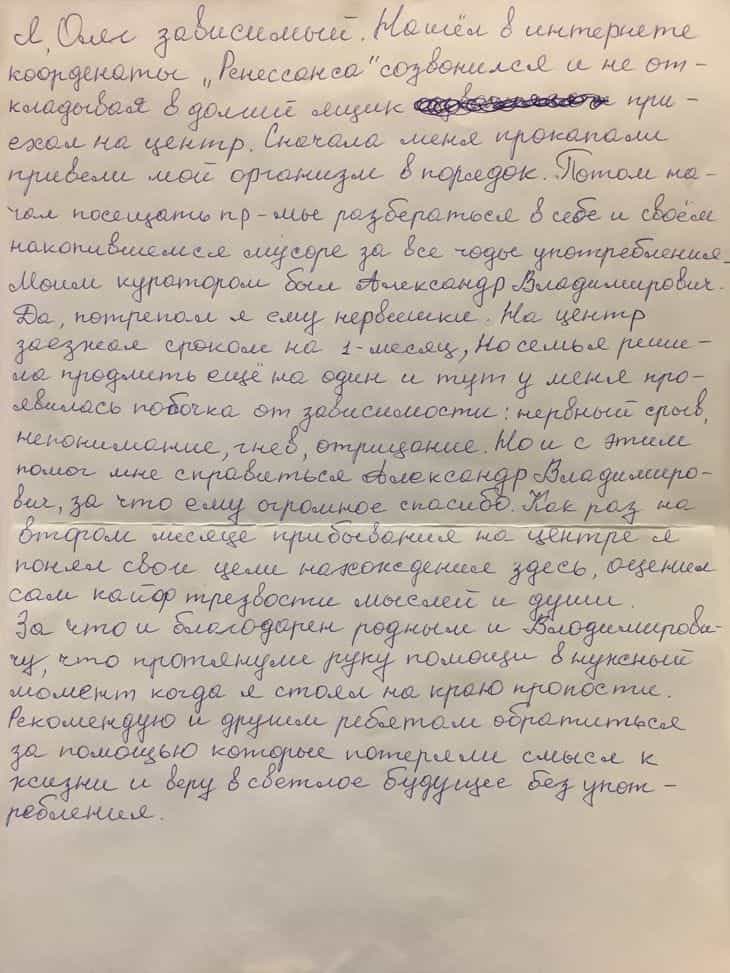 Я, Олег зависимый. Нашёл в интернете
коорденаты „Ренессанса" созвонился и не от-
кладывая в долгий ящик при-
ехал на центр. Сначала меня прокапали
привели мой организм в порядок. Потом на-
чал посещать пр-мы разбераться в себе и своём
накопившемся мусоре за все годы употребления.
Моим куратором был Александр Владимирович.
Да, потрепал я ему нервишки. На центр
заезжал сроком на 1-месяц, но семья реши-
ла продлить ещё на один и тут у меня про-
явилась побочка от зависимости: нервный срыв,
непонимание, гнев, отрицание. Но и с этим
помог мне справиться Александр Владимиро-
вич, за что ему огромное спасибо. Как раз на
втором месяце прибывания на центре я
понял свои цели нахождения здесь, оценил
сам кайф трезвости мыслей и души.
За что и благодарен родным и Владимирови-
чу, что протянули руку помощи в нужный
момент когда я стоял на краю пропости.
Рекомендую и другим ребятам обратиться
за помощью которые потеряли смысл к
жизни и веру в светлое будущее без упот-
ребления.